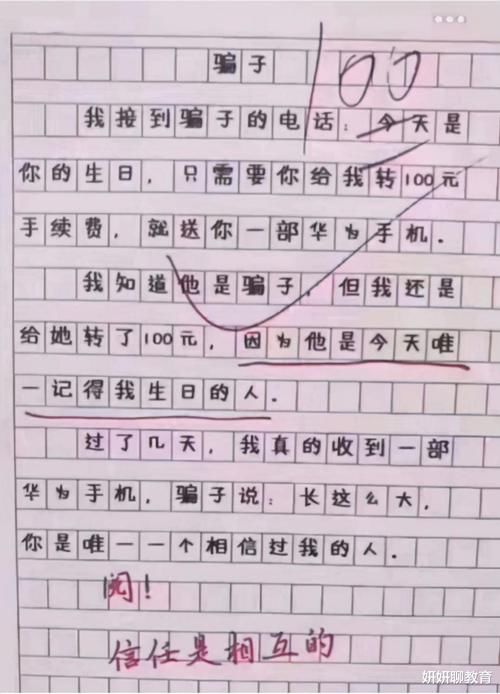 骗子
100
我接到骗子的电话：今天是
你的生日，只需要你给我转100元
手续费，就送你一部华为手机．
我知道他是骗子，但我还是
给她转了100元，因为他是今天唯
一记得我生日的人．
过了几天，我真的收到一部
华为手机，骗子说：长这么大，
你是唯一一个相信过我的人．
阅！
信任是相互的
妍妍聊教育